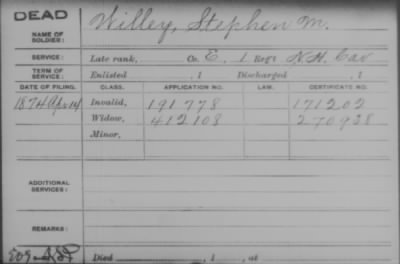 DEAD
NAME OF SOLDIER: Willey, Stephen M.
SERVICE: Late rank, Co. E, 1 Reg't N.H. Cav
TERM OF SERVICE: Enlisted , 1 Discharged , 1
DATE OF FILING. CLASS. APPLICATION NO. LAW. CERTIFICATE NO.
1874 Apr 14 Invalid, 191778 171202
Widow, 412108 270928
Minor,
ADDITIONAL SERVICES:
REMARKS:
Died , 1 , at